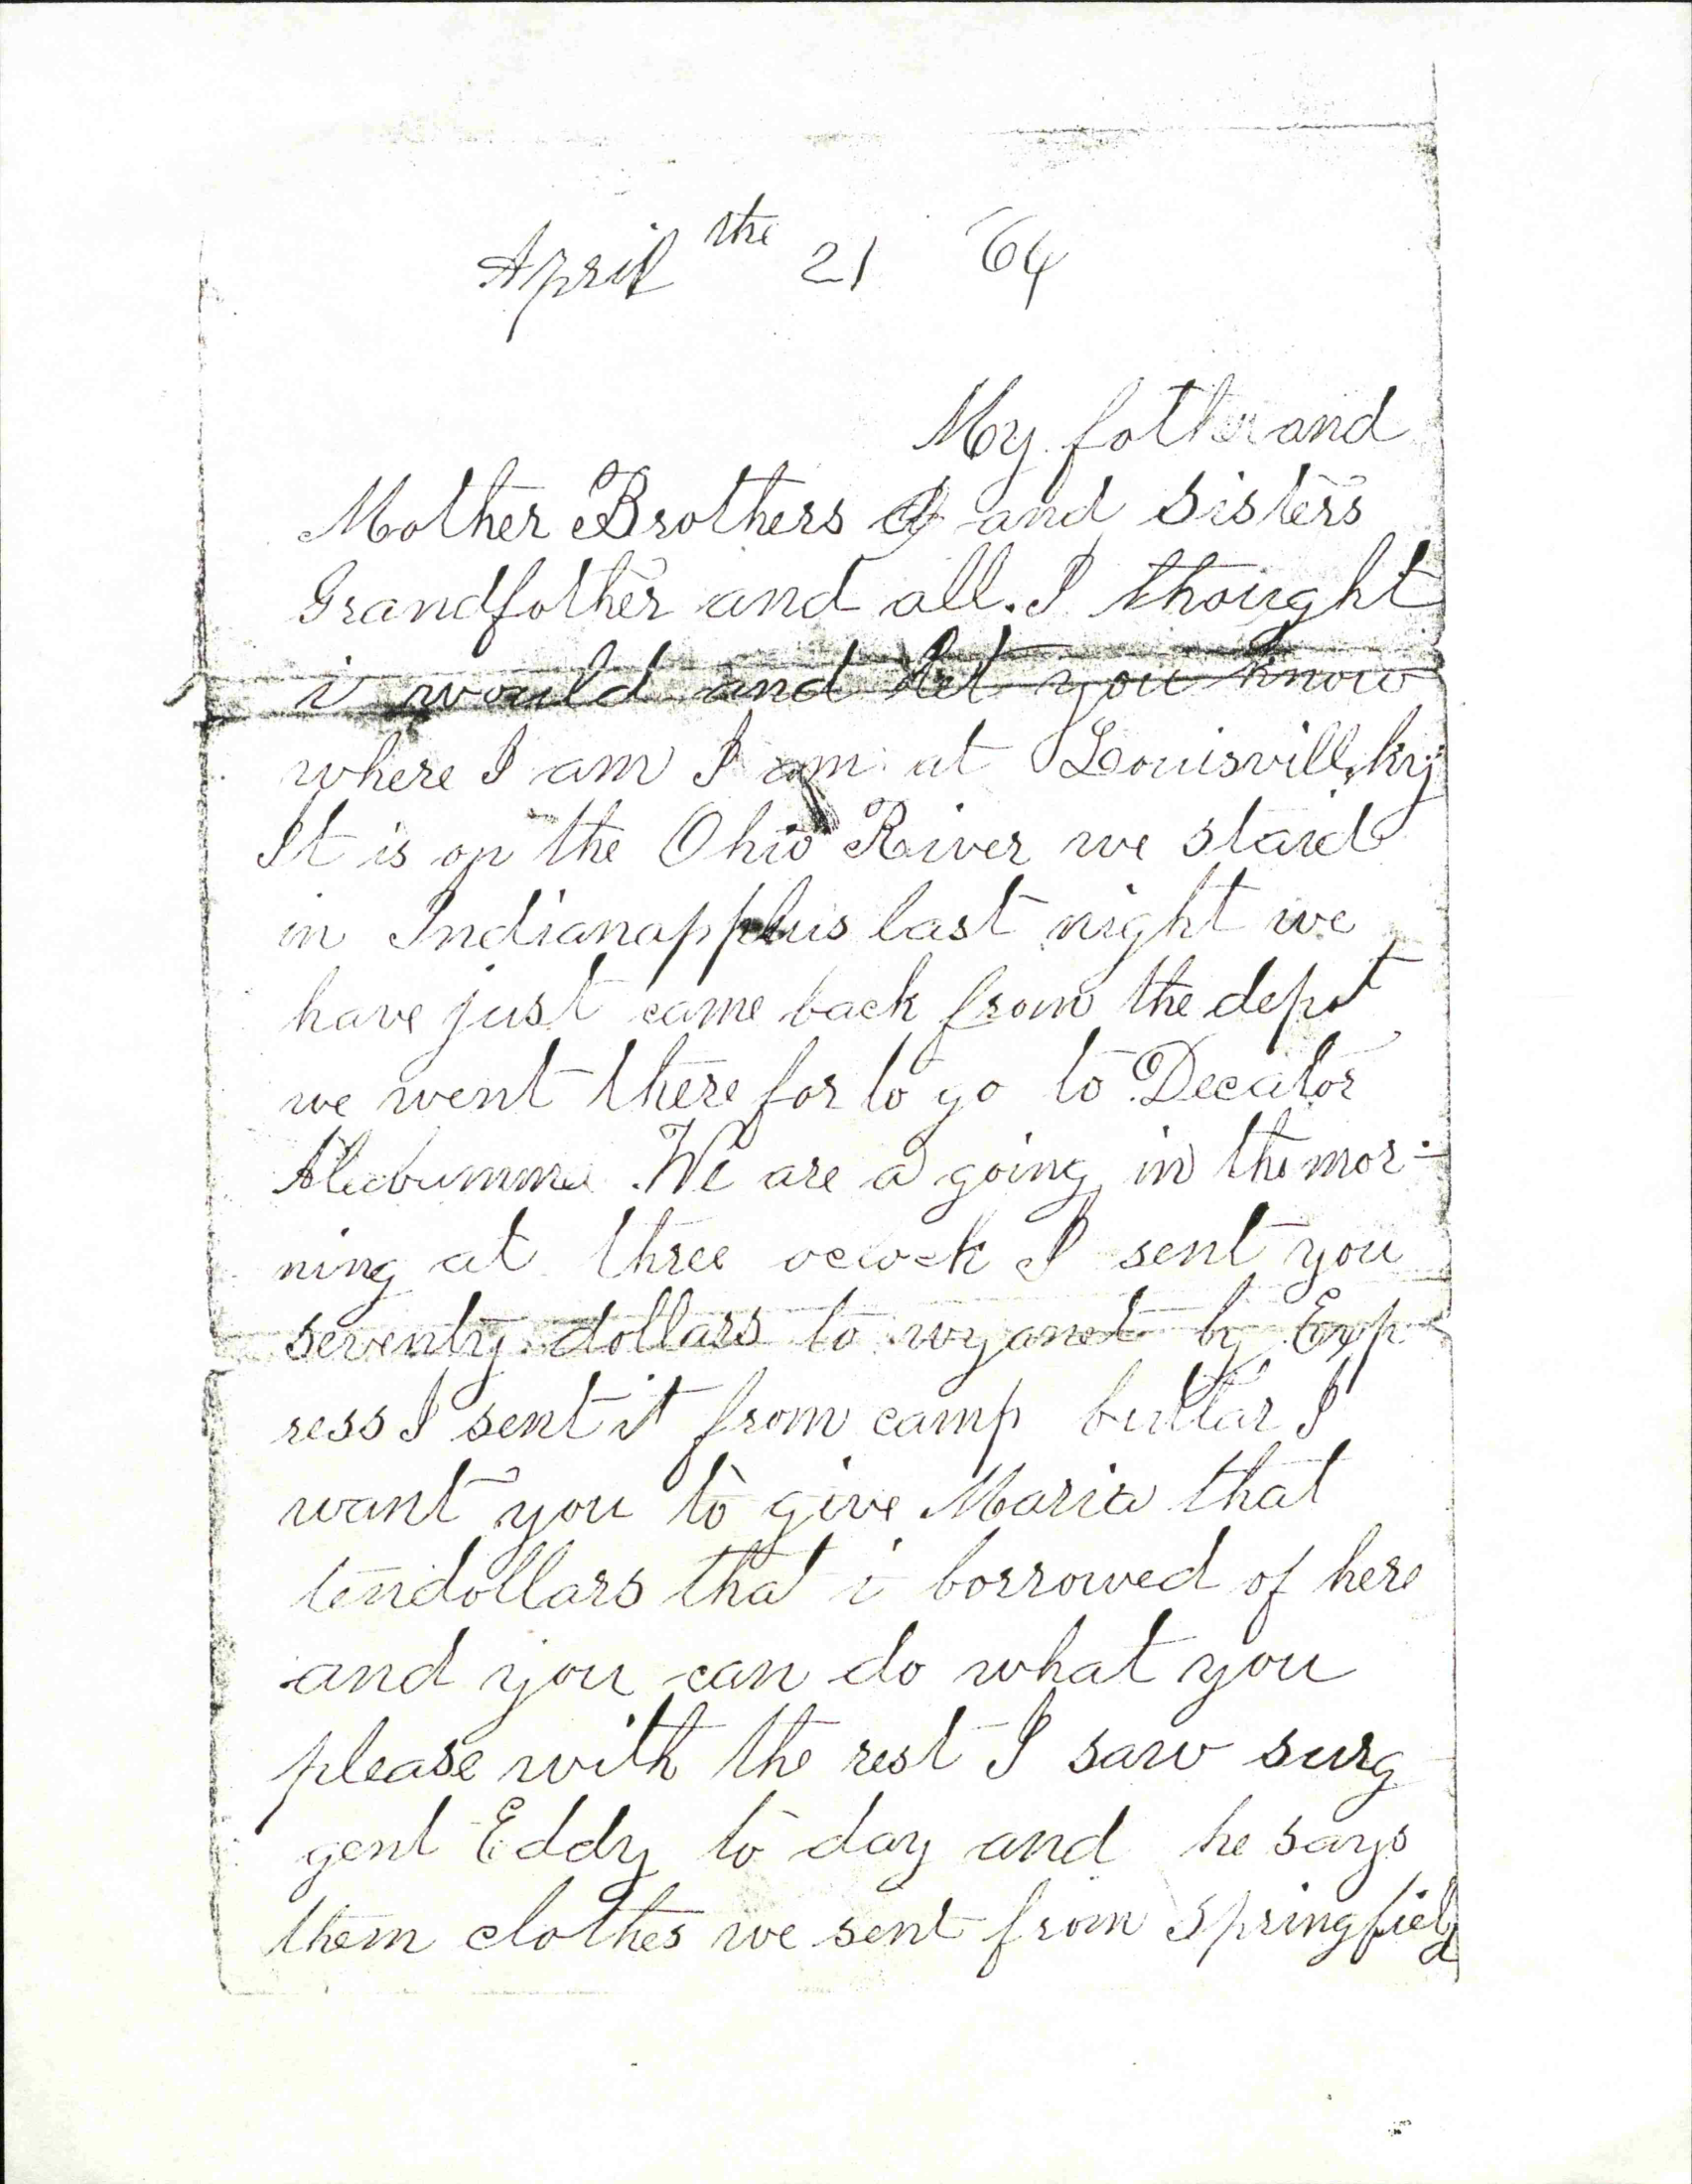 April the 21 64
My father and
Mother Brothers and Sisters
Grandfather and all. I thought
i would and let you know
where I am I am at Louisvill, ky
It is on the Ohio River we staid
in Indianapplus last night we
have just came back from the depot
we went there for to go to Decator
Alabumma. We are a going in the mor-
ning at three oclock I sent you
seventy dollars to wyanet by Exp
ress I sent it from camp buttar I
want you to give Maria that
tendollars that i borrowed of here
and you can do what you
please with the rest I saw surg
gent Eddy to day and he says
them clothes we sent from Springfield